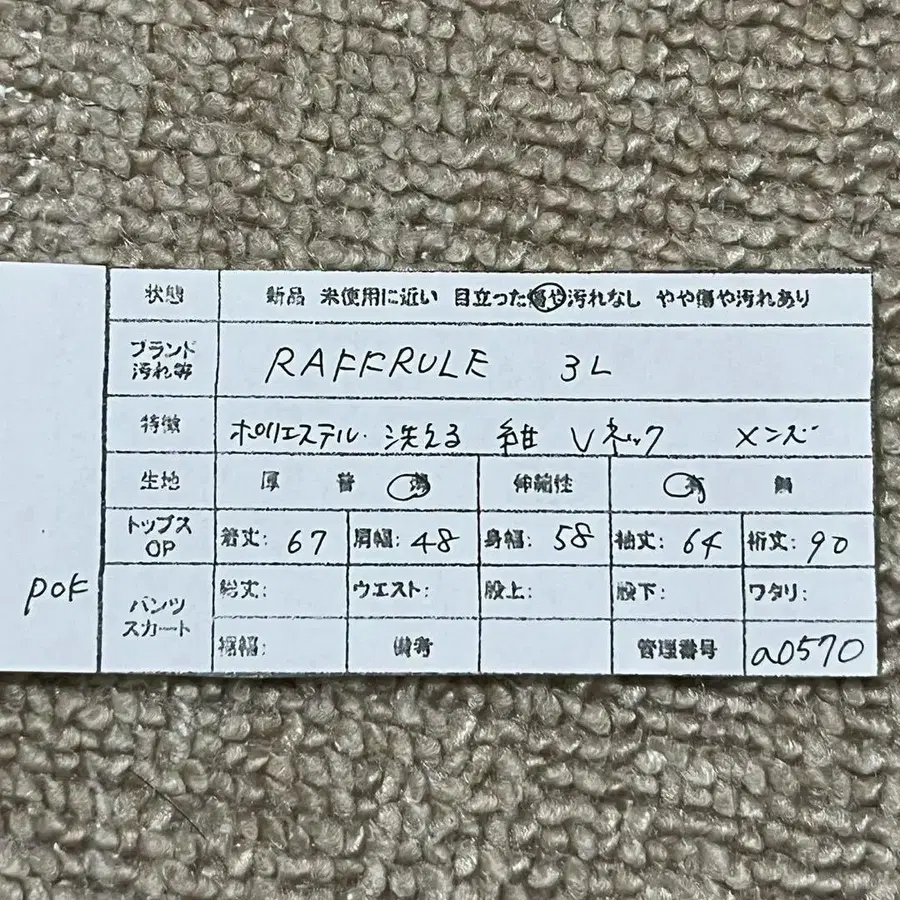 状態 新品 未使用に近い 目立った傷や汚れなし やや傷や汚れあり
ブランド
汚れ等 RAFFRULE 3L
特徴 ポリエステル 洗える 紺 Vネック メンズ
生地 厚 普 薄 伸縮性 有 無
トップス
OP 着丈: 67 肩幅: 48 身幅: 58 袖丈: 64 裄丈: 90
POF
パンツ
スカート 総丈: ウエスト: 股上: 股下: ワタリ:
裾幅: 備考 管理番号 a0570